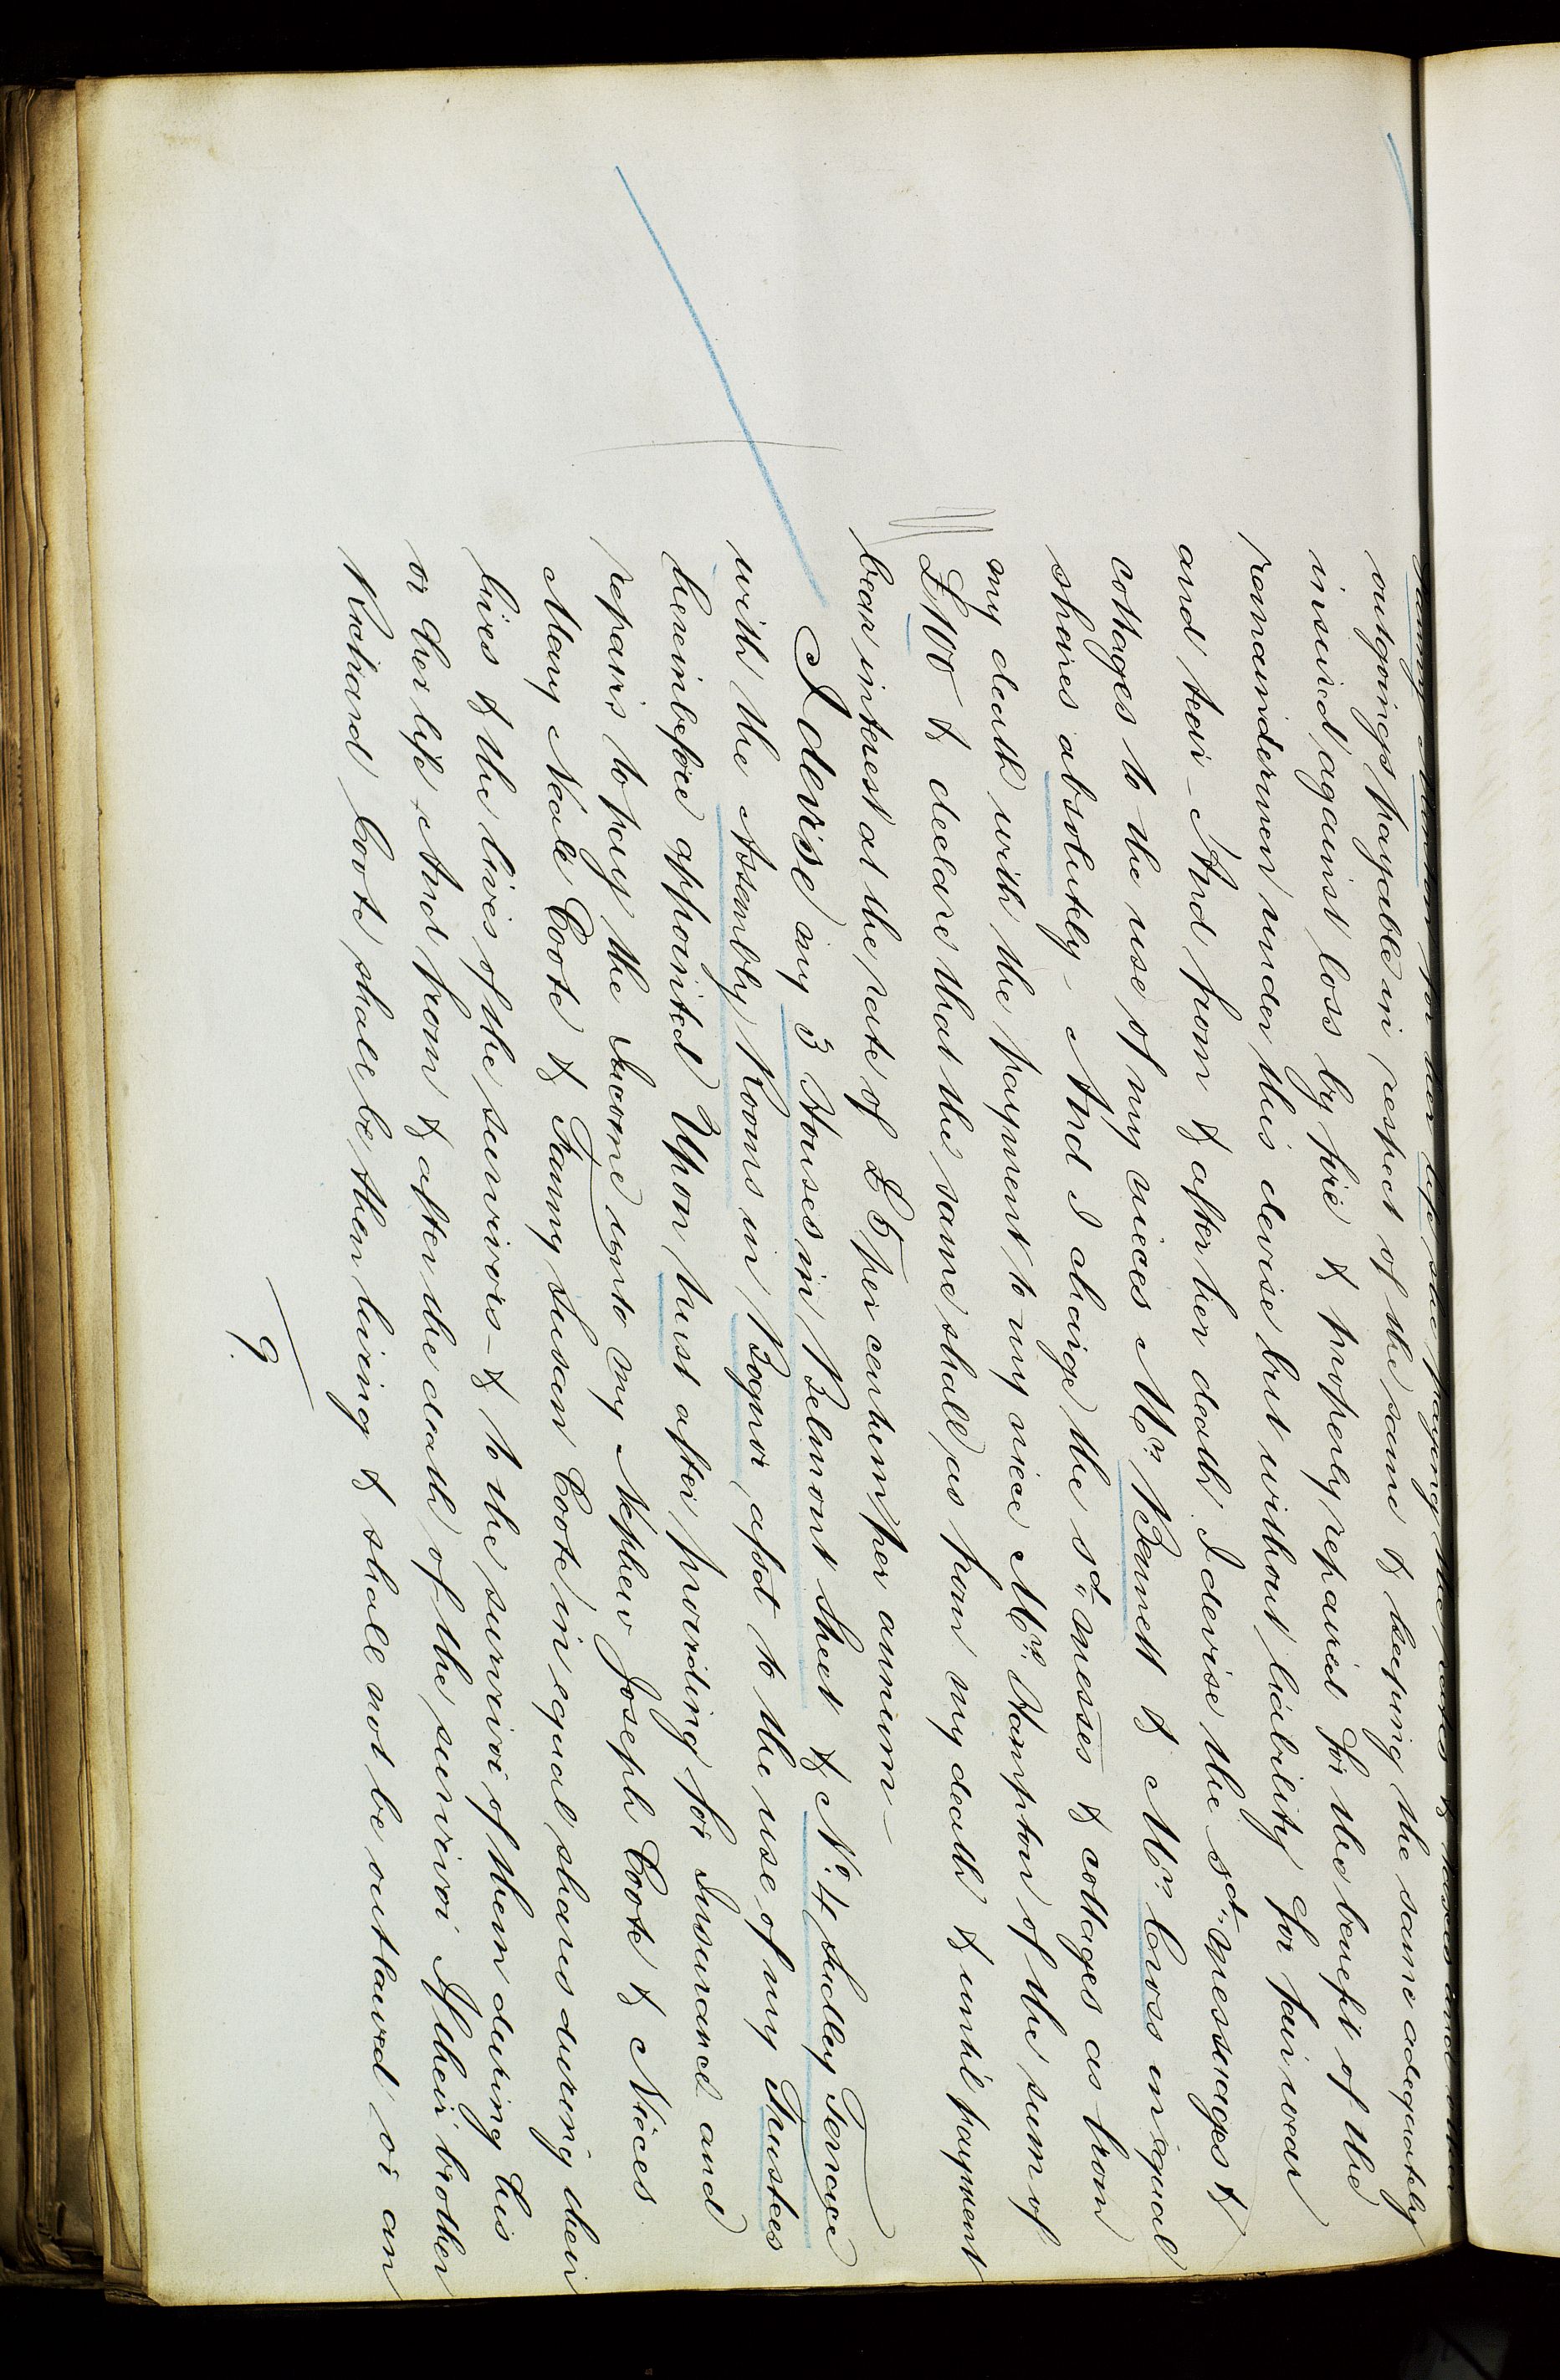 for her life she paying the rates & taxes and other
outgoings payable in respect of the same & keeping the same adequately
insured against loss by fire & properly repaired for the benefit of the
remaindermen under this devise but without liability for fair wear
and tear – And from & after her death I devise the sd. messuages &
cottages to the use of my nieces Mrs. Bennett & Mrs. Cross in equal
shares absolutely – And I charge the sd. messes & cottages as from
my death with the payment to my niece Mrs. Hampton of the sum of
£100 & declare that the same shall as from my death & until payment
bear interest at the rate of £5 per centum per annum –
I devise my 3 Houses in Belmont Street & No. 4 Sudley Terrace
with the Assembly Rooms in Bognor afsd to the use of my Trustees
hereinbefore appointed Upon trust after providing for Insurance and
repairs to pay the Income unto my Nephew Joseph Coote & Nieces
Mary Neale Coote & Fanny Susan Coote in equal shares during their
lives & the lives of the survivors – & to the survivor of them during his
or her life And from & after the death of the survivor If their brother
Richard Coote shall be then living & shall not be outlawed or an
9.